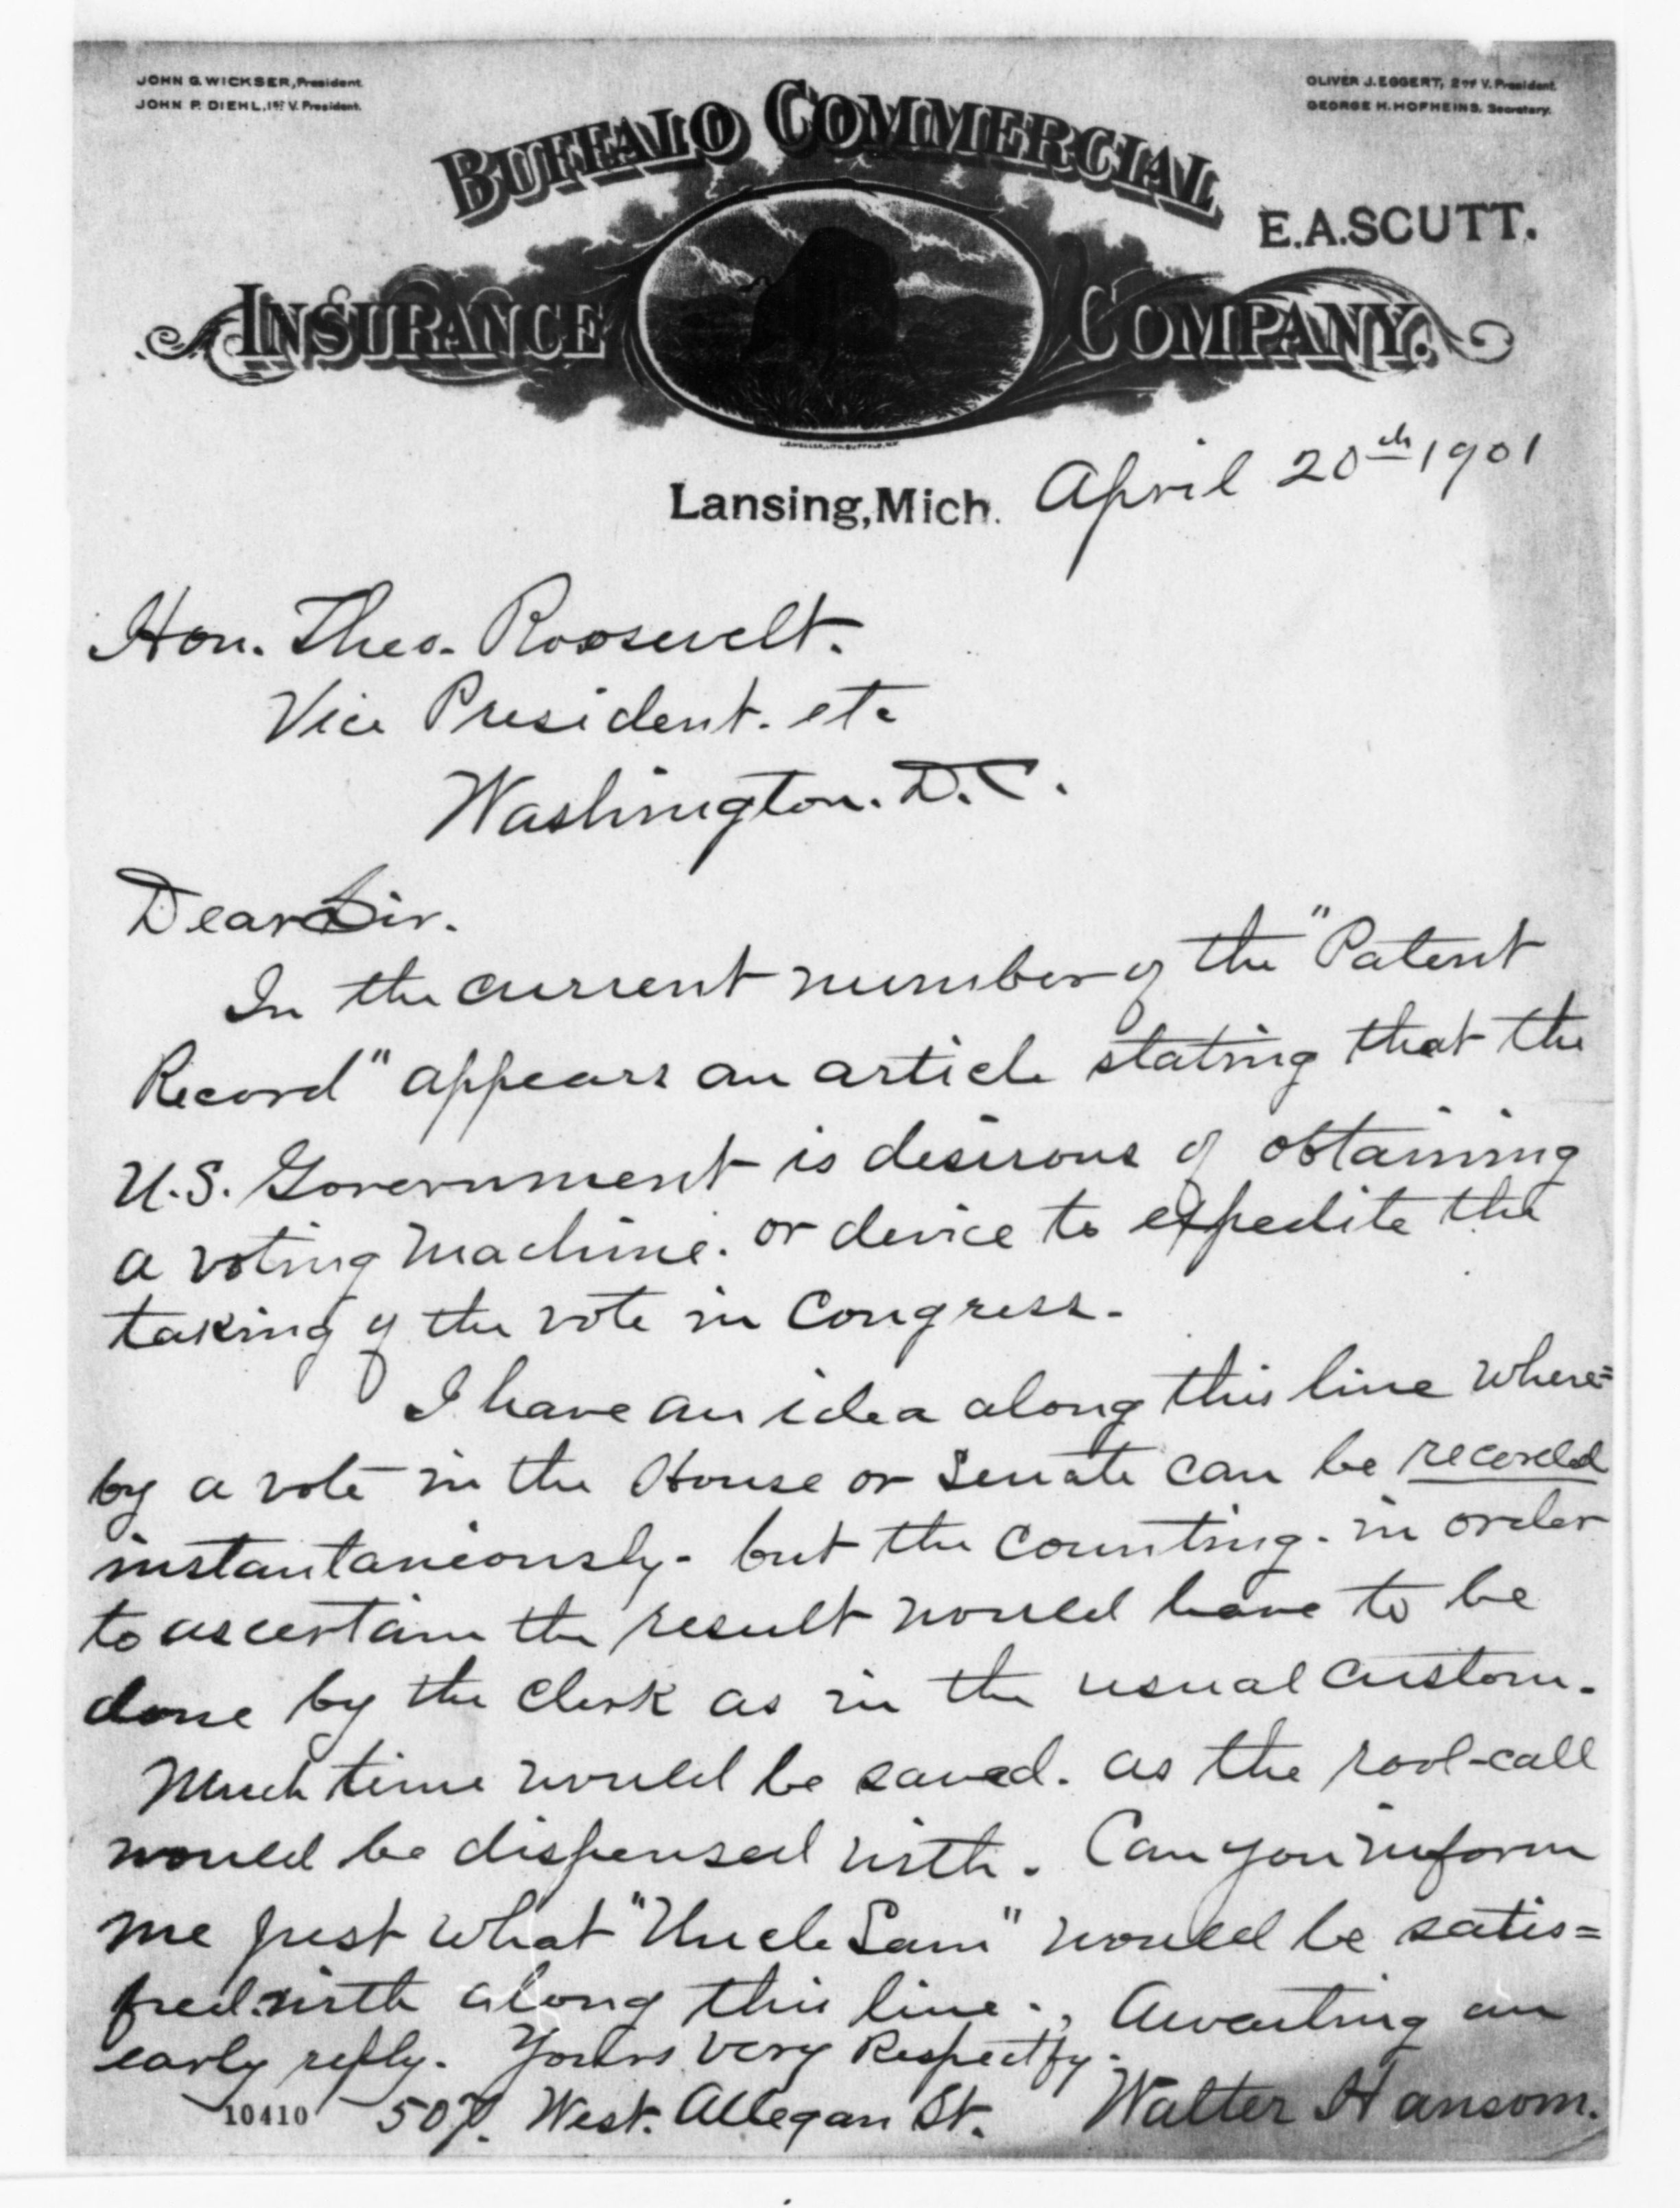 JOHN G. WICKSER, President.
JOHN P. DIEHL, 1st V. President.
OLIVER J. EGGERT, 2nd V. President.
GEORGE H. HOFHEINS, Secretary.
BUFFALO COMMERCIAL
E.A.SCUTT.
INSURANCE COMPANY.
Lansing, Mich. April 20th 1901
Hon. Theo. Roosevelt.
Vice President. etc
Washington. D.C.
Dear Sir.
In the current number of the "Patent
Record" appears an article stating that the
U.S. Government is desirous of obtaining
a voting machine. or device to expedite the
taking of the vote in Congress.
I have an idea along this line where=
by a vote in the House or Senate can be recorded
instantaneously. but the counting. in order
to ascertain the result would have to be
done by the clerk as in the usual custom.
Much time would be saved. as the rool-call
would be dispensed with. Can you inform
me just what "Uncle Sam" would be satis=
fied with along this line., Awaiting an
early reply. Yours Very Respectfy.
10410 507. West. Allegan St. Walter Hansom.